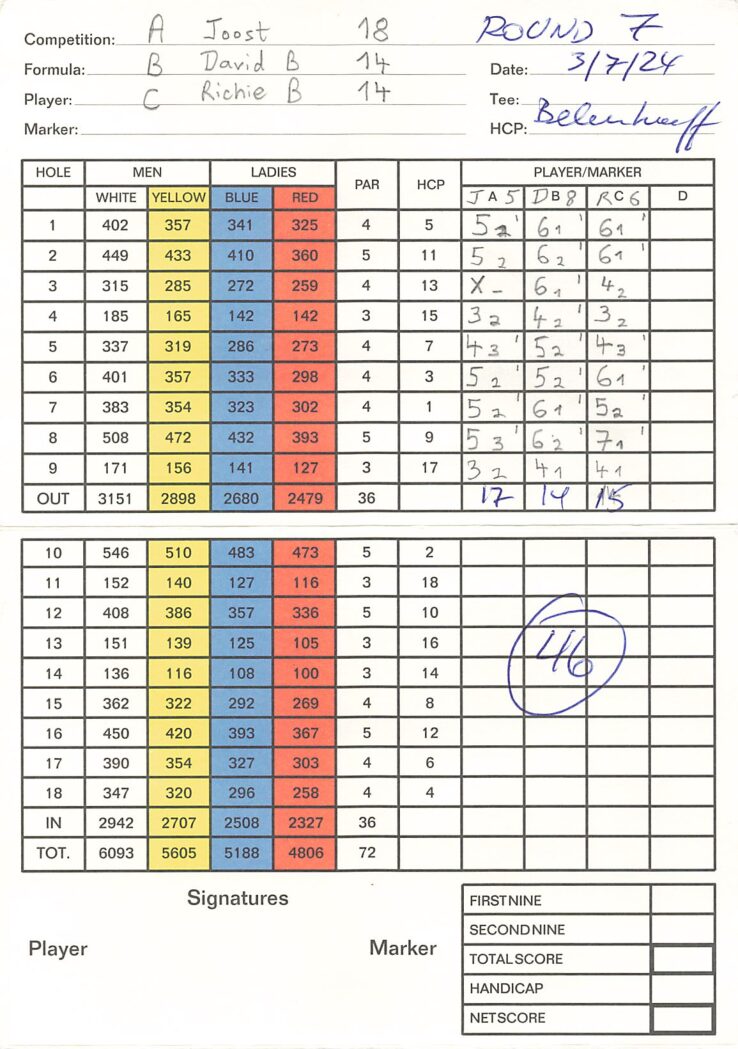 Competition: A Joost 18 ROUND 7
Formula: B David B 14 Date: 3/7/24
Player: C Richie B 14 Tee:
Marker: HCP:
HOLE MEN LADIES PAR HCP PLAYER/MARKER
WHITE YELLOW BLUE RED J A 5 D B 8 R C 6 D
1 402 357 341 325 4 5 5 2 ' 6 1 ' 6 1 '
2 449 433 410 360 5 11 5 2 6 2 ' 6 1 '
3 315 285 272 259 4 13 X - 6 1 ' 4 2
4 185 165 142 142 3 15 3 2 4 2 ' 3 2
5 337 319 286 273 4 7 4 3 ' 5 2 ' 4 3 '
6 401 357 333 298 4 3 5 2 ' 5 2 ' 6 1 '
7 383 354 323 302 4 1 5 2 ' 6 1 ' 5 2 '
8 508 472 432 393 5 9 5 3 ' 6 2 ' 7 1 '
9 171 156 141 127 3 17 3 2 4 1 4 1
OUT 3151 2898 2680 2479 36 17 14 15
10 546 510 483 473 5 2
11 152 140 127 116 3 18
12 408 386 357 336 5 10
13 151 139 125 105 3 16
46
14 136 116 108 100 3 14
15 362 322 292 269 4 8
16 450 420 393 367 5 12
17 390 354 327 303 4 6
18 347 320 296 258 4 4
IN 2942 2707 2508 2327 36
TOT. 6093 5605 5188 4806 72
Signatures
Player Marker
FIRST NINE
SECOND NINE
TOTAL SCORE
HANDICAP
NET SCORE